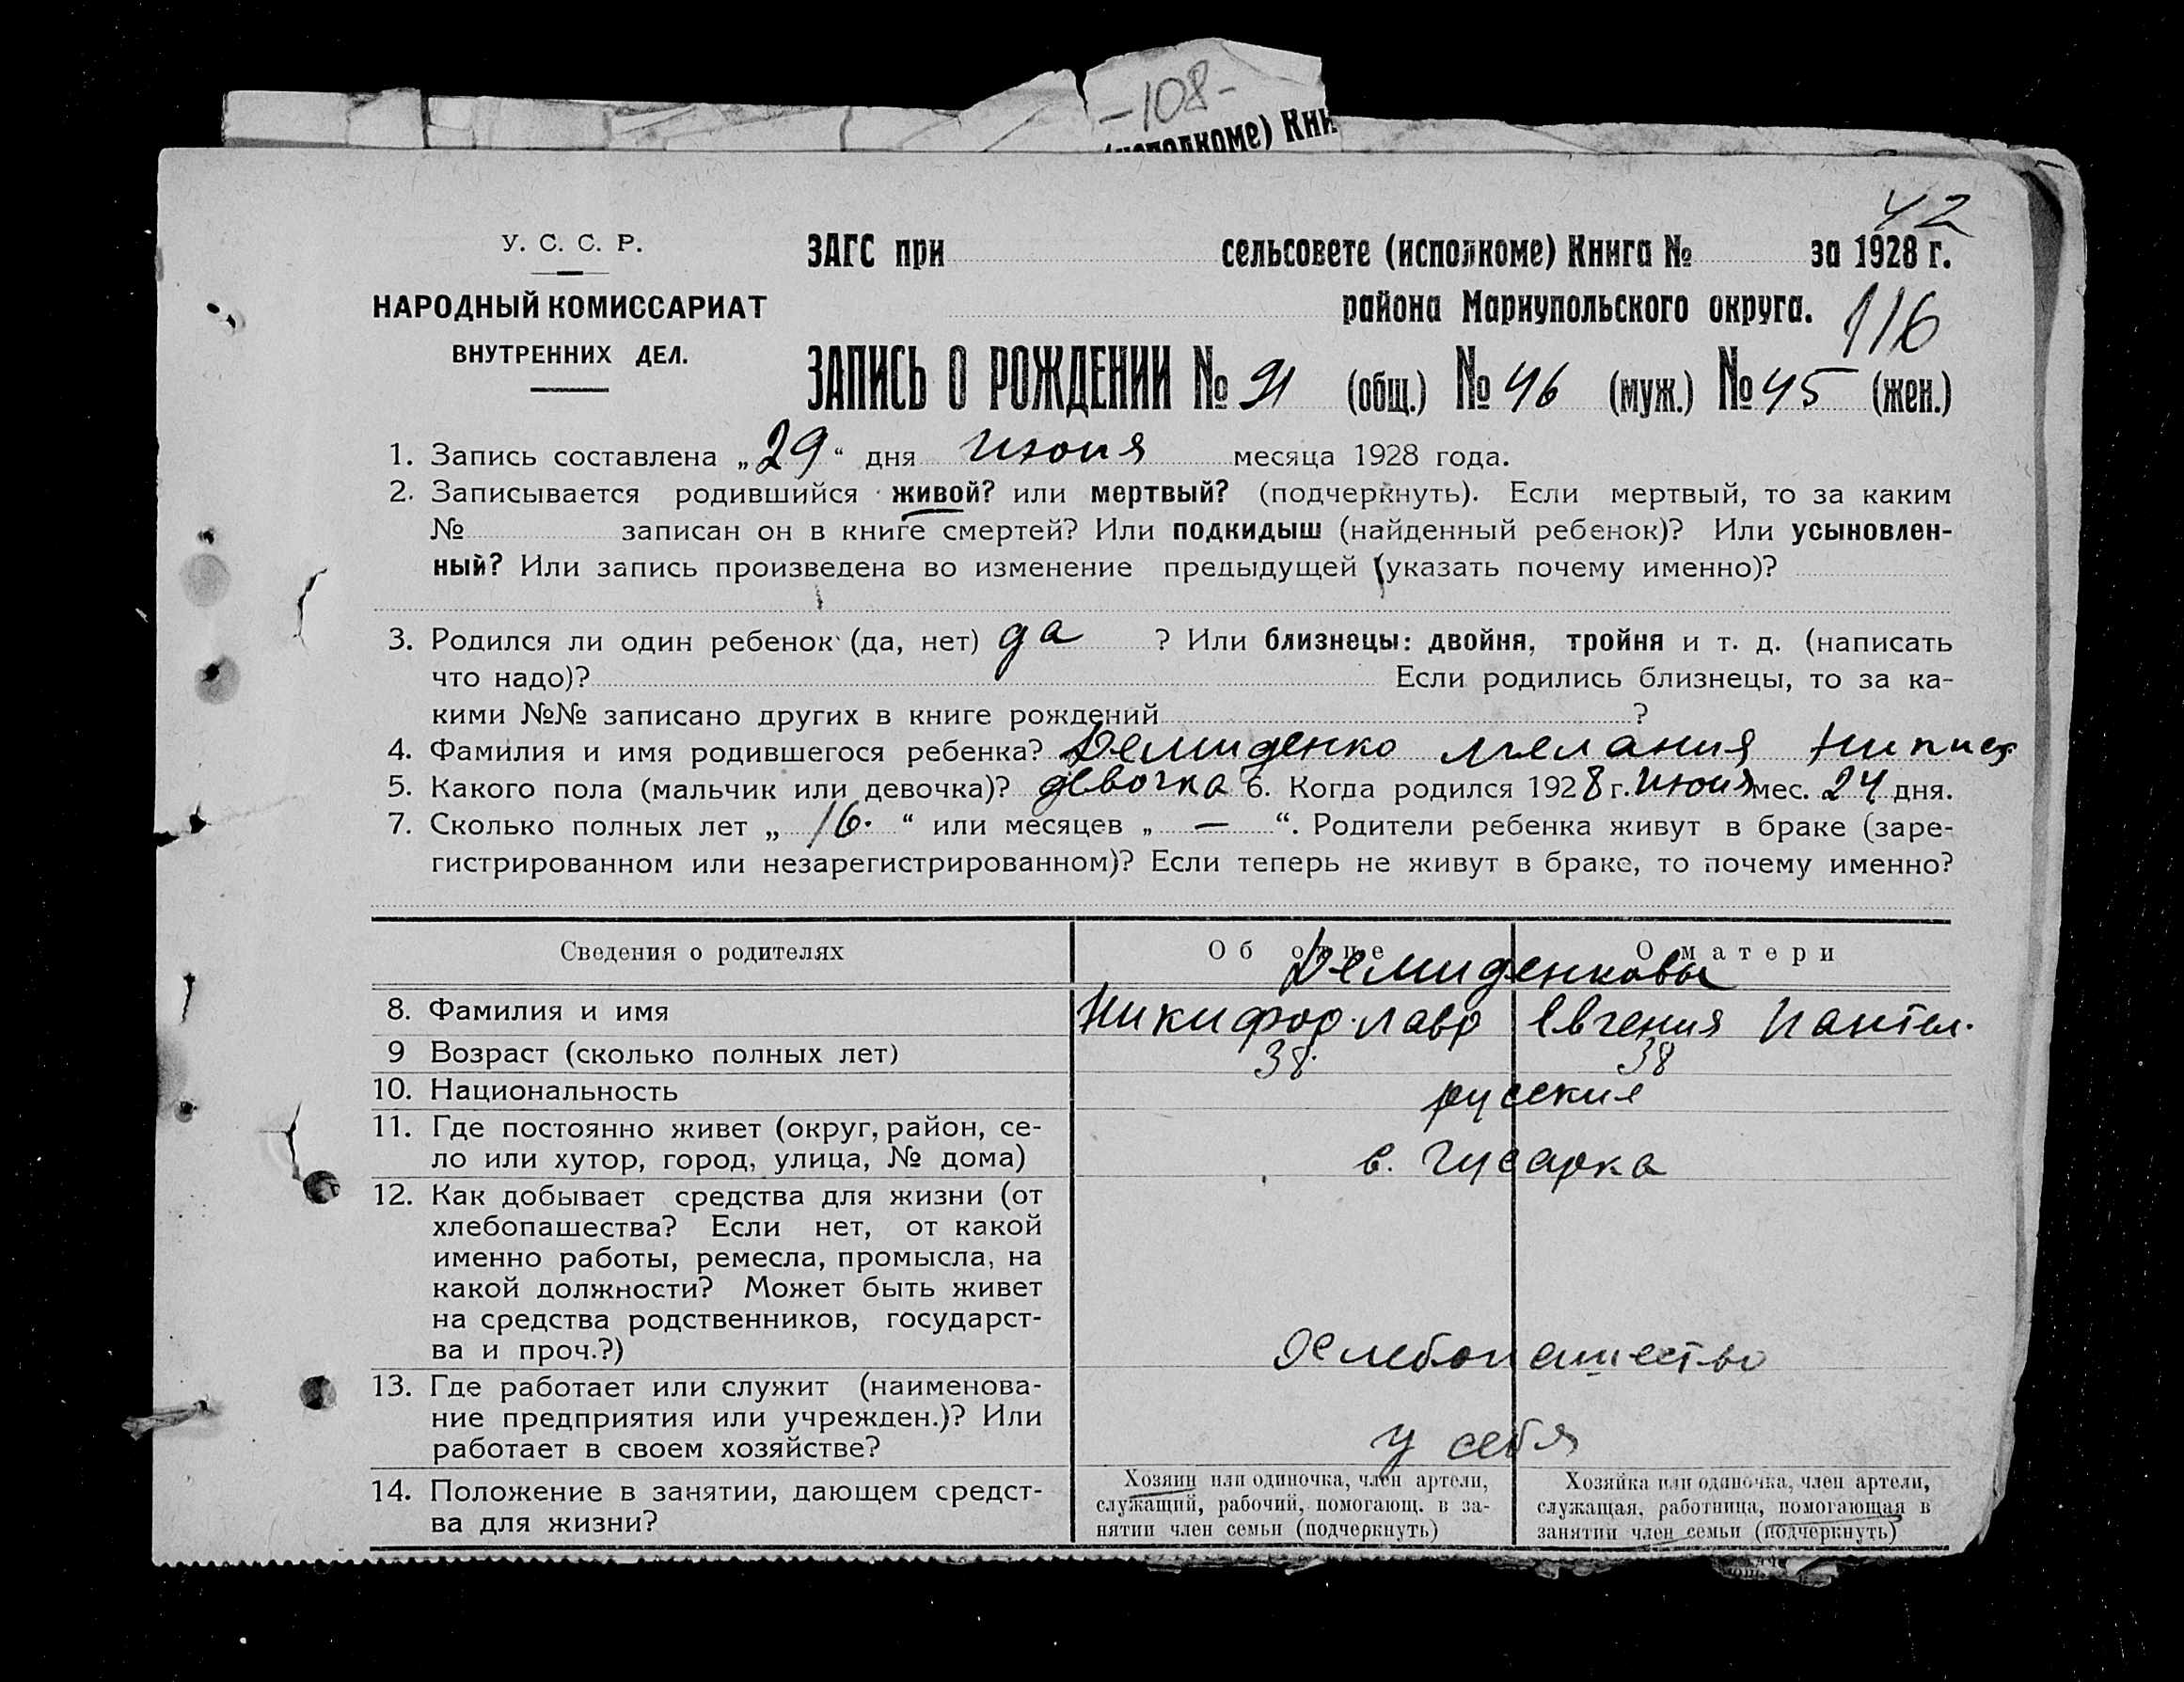 -108-
(исполкоме) Кни
42
У. С. С. Р.
ЗАГС при сельсовете (исполкоме) Книга № за 1928 г.
НАРОДНЫЙ КОМИССАРИАТ
района Мариупольского округа.
116
ВНУТРЕННИХ ДЕЛ.
ЗАПИСЬ О РОЖДЕНИИ № 91 (общ.) № 46 (муж.) № 45 (жен.)
1. Запись составлена „29“ дня июня месяца 1928 года.
2. Записывается родившийся живой? или мертвый? (подчеркнуть). Если мертвый, то за каким
№ записан он в книге смертей? Или подкидыш (найденный ребенок)? Или усыновлен-
ный? Или запись произведена во изменение предыдущей (указать почему именно)?
3. Родился ли один ребенок (да, нет) да ? Или близнецы: двойня, тройня и т. д. (написать
что надо)? Если родились близнецы, то за ка-
кими №№ записано других в книге рождений ?
4. Фамилия и имя родившегося ребенка? Демиденко Мелания
5. Какого пола (мальчик или девочка)? девочка 6. Когда родился 1928 г. июня мес. 24 дня.
7. Сколько полных лет „16.“ или месяцев „—“. Родители ребенка живут в браке (заре-
гистрированном или незарегистрированном)? Если теперь не живут в браке, то почему именно?
Сведения о родителях Об отце О матери
Демиденковы
8. Фамилия и имя Никифор Лавр Евгения Пантел.
9 Возраст (сколько полных лет) 38. 38
10. Национальность русские
11. Где постоянно живет (округ, район, се-
ло или хутор, город, улица, № дома) с. Гусарка
12. Как добывает средства для жизни (от
хлебопашества? Если нет, от какой
именно работы, ремесла, промысла, на
какой должности? Может быть живет
на средства родственников, государст-
ва и проч.?) Хлебопашество
13. Где работает или служит (наименова-
ние предприятия или учрежден.)? Или
работает в своем хозяйстве? у себя
14. Положение в занятии, дающем средст-
ва для жизни?
Хозяин или одиночка, член артели,
служащий, рабочий, помогающ. в за-
нятии член семьи (подчеркнуть)
Хозяйка или одиночка, член артели,
служащая, работница, помогающая в
занятии член семьи (подчеркнуть)